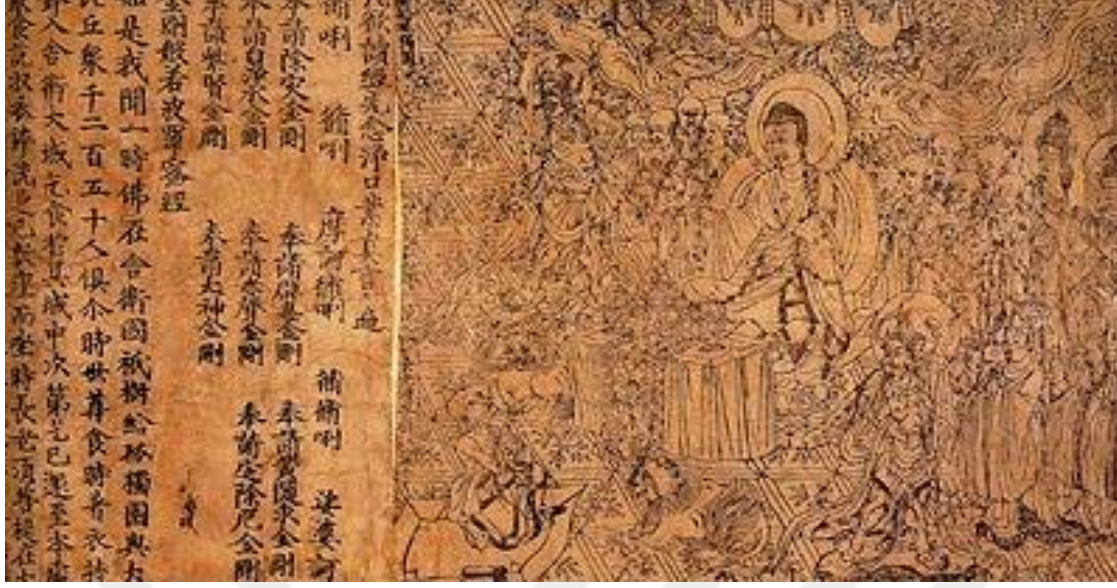 凡欲讀經先念淨口業真言遍
脩唎 脩唎 摩訶脩唎 脩脩唎 娑婆訶
奉請除災金剛 奉請辟毒金剛 奉請黃隨求金剛
奉請白淨水金剛 奉請赤聲金剛 奉請定除厄金剛
奉請紫賢金剛 奉請大神金剛
金剛般若波羅蜜經
如是我聞一時佛在舍衛國祇樹給孤獨園與大
比丘衆千二百五十人俱尒時世尊食時著衣持
鉢入舍衛大城乞食於其城中次第乞已還至本處
飯食訖收衣鉢洗足已敷座而坐時長老須菩提在大